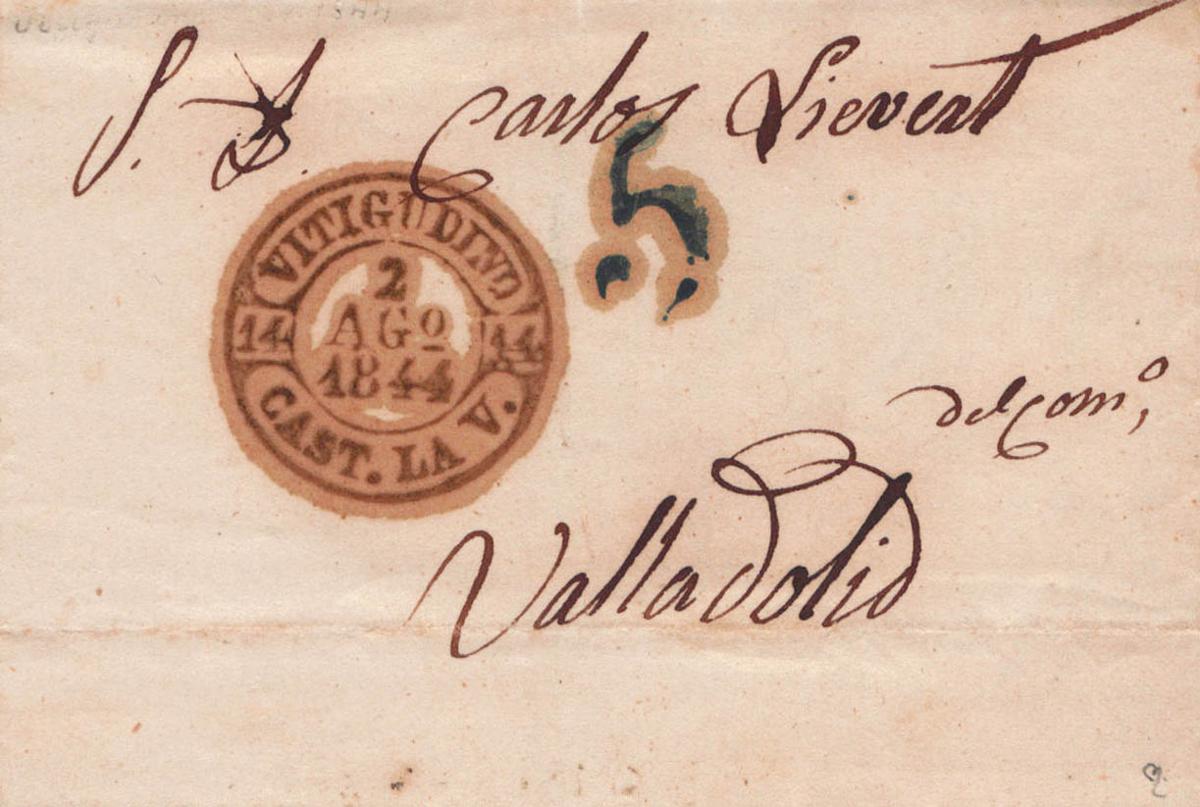 S. D. Carlos Lievert
5
VITIGUDINO
2
14 AGº 14
1844
CAST. LA V.
del comº,
Valladolid